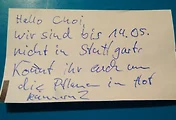 Hello Choi,
wir sind bis 14.05.
nicht in Stuttgart
Könnt ihr euch um
die Pflanzen im Hof
kümmern?